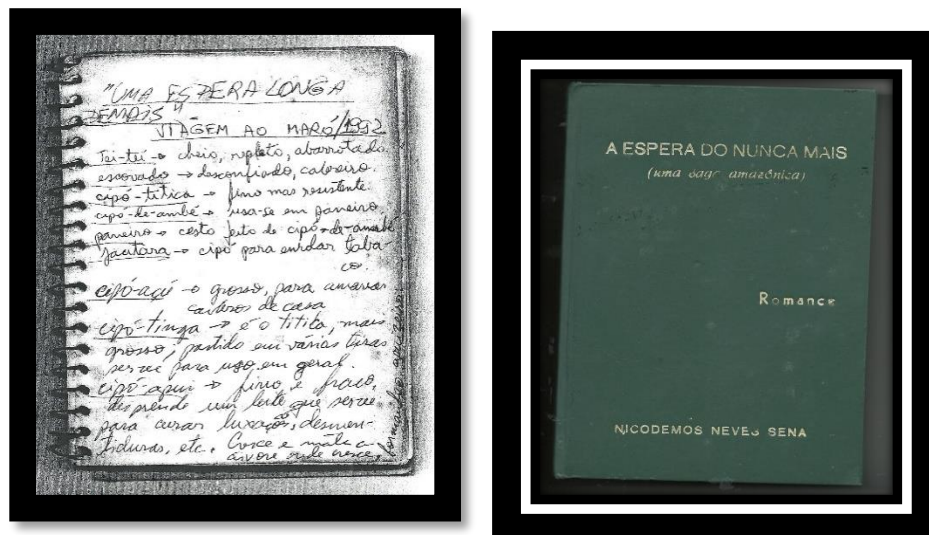 "UMA ESPERA LONGA
DEMAIS"
VIAGEM AO MARÓ/1992
Tei-tei → cheio, repleto, abarrotado
escovado → desconfiado, cabreiro.
cipó-titica → fino mas resistente.
cipó-de-ambé → usa-se em paneiro.
paneiro → cesto feito de cipó-de-ambé
jacitara → cipó para enrolar taba-
co.
cipó-açú → o grosso, para amarrar
de casa
cipó-tinga → é o titica, mais
grosso; partido em várias tiras
serve para uso em geral.
cipó-apuí → fino e fraco,
desprende um leite que serve
para curar luxações, desmen-
tiduras, etc. Cresce e mata a
árvore onde cresce,
A ESPERA DO NUNCA MAIS
(uma saga amazônica)
Romance
NICODEMOS NEVES SENA